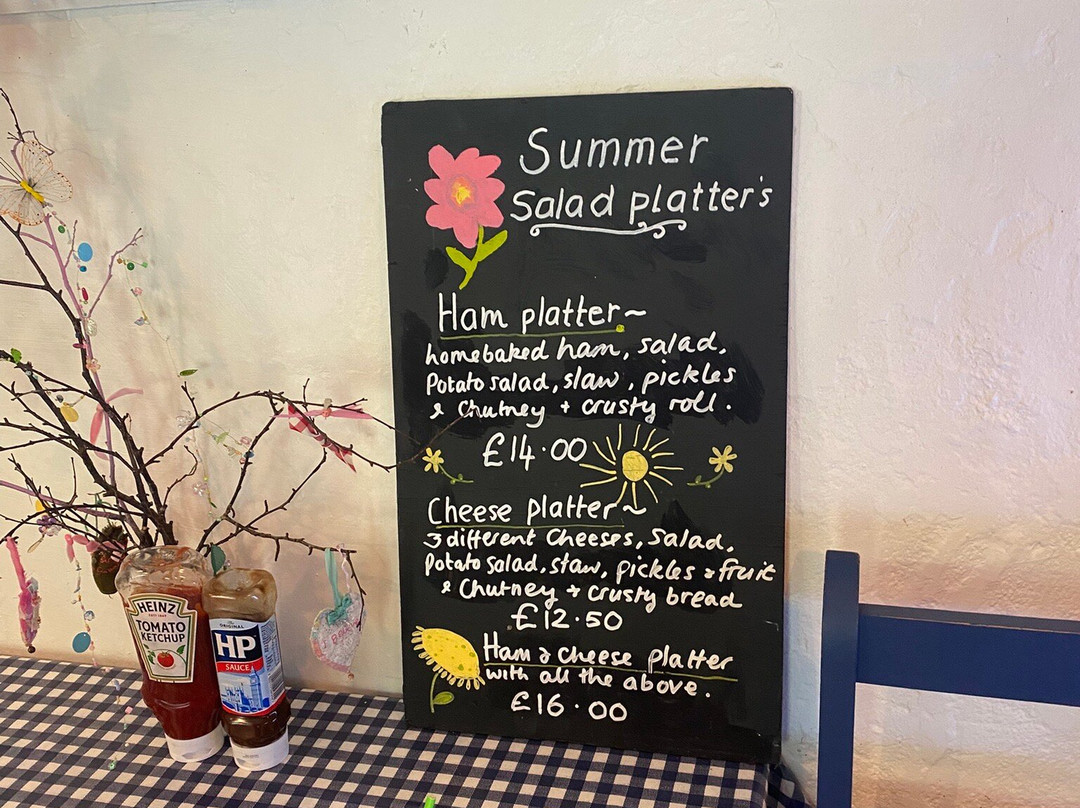 Summer
Salad platter's
Ham platter~
homebaked ham, salad,
Potato salad, slaw, pickles
& Chutney + crusty roll.
£14.00
Cheese platter~
3 different Cheeses, Salad,
Potato salad, slaw, pickles & fruit
& Chutney + crusty bread
£12.50
Ham & cheese platter
with all the above.
£16.00
HEINZ
TOMATO
KETCHUP
ORIGINAL
HP
SAUCE